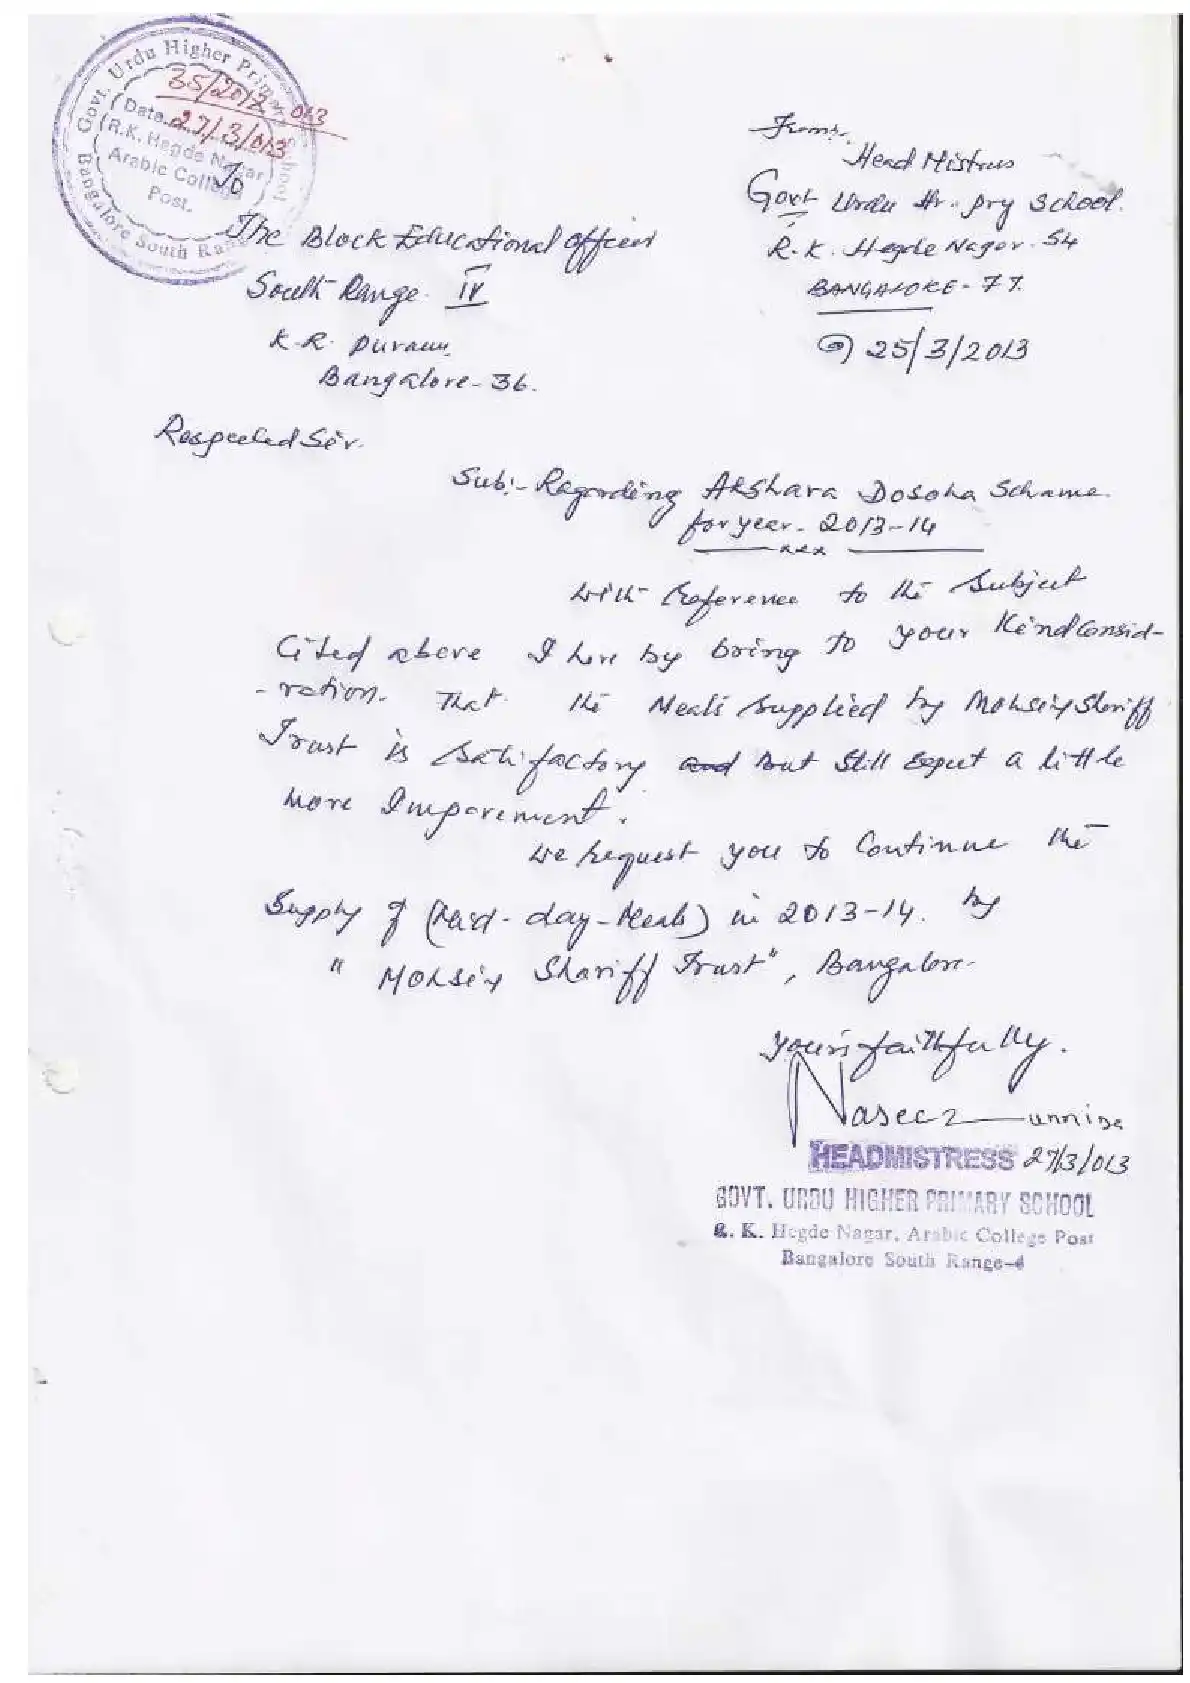 Govt. Urdu Higher Primary School
35/2012-013
Date 27/3/013
R.K. Hegde Nagar
Arabic College
Post.
Bangalore South Range
From:
Head Mistrus
Govt Urdu Hr. pry School.
R. K. Hegde Nagar. 54
BANGALORE - 77.
25/3/2013
To
The Block Educational officer
South Range. IV
K.R. Puram
Bangalore - 36.
Respected Sir.
Sub:- Regarding AKShara Dosoha Schame.
for year. 2013-14
with Reference to the Subject
Cited above I here by bring to your Kind Consid-
-ration. That the Meals Supplied by Mohsin Shariff
Trust is Satisfactory and but Still Expect a little
More Imporement.
We Request you to Continue the
Supply of (Mid-day-Meals) in 2013-14. by
"Mohsin Shariff Trust", Bangalore-
yours faithfully.
Naseez unnisa
HEADMISTRESS 27/3/013
GOVT. URDU HIGHER PRIMARY SCHOOL
R. K. Hegde Nagar, Arabic College Post
Bangalore South Range-4